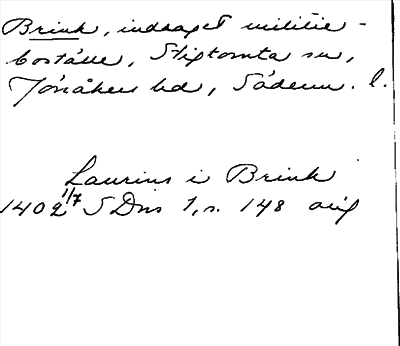 Brink, indraget militie-
boställe, Stigtomta sn,
Jönåkers hd, Söderm. l.
Laurins i Brink
1402 1/7 SDns 1, s. 148 orig